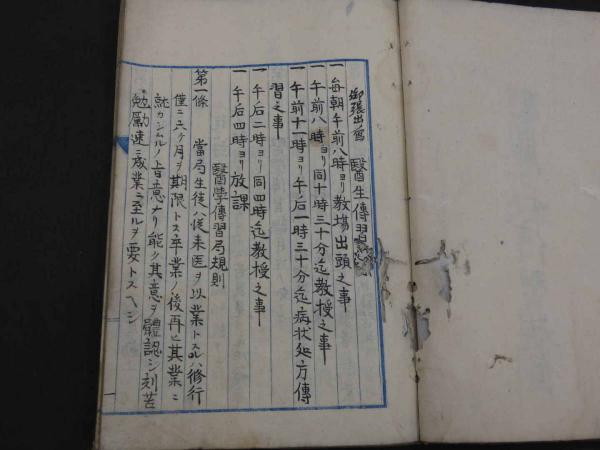 御張出舎 醫生傳習
一 毎朝午前八時ヨリ教場出頭之事
一 午前八時ヨリ同十時三十分迄教授之事
一 午前十一時ヨリ午后一時三十分迄病状処方傳
習之事
一 午后二時ヨリ同四時迄教授之事
一 午后四時ヨリ放課
醫學傳習局規則
第一條 當局生徒ハ従来医ヲ以業トスルハ修行
僅ニ六ケ月ヲ期限トス卒業ノ後再ヒ其業ニ
就カシムルノ旨意ナリ能ク其意ヲ體認シ刻苦
勉勵速ニ成業ニ至ルヲ要トスヘシ